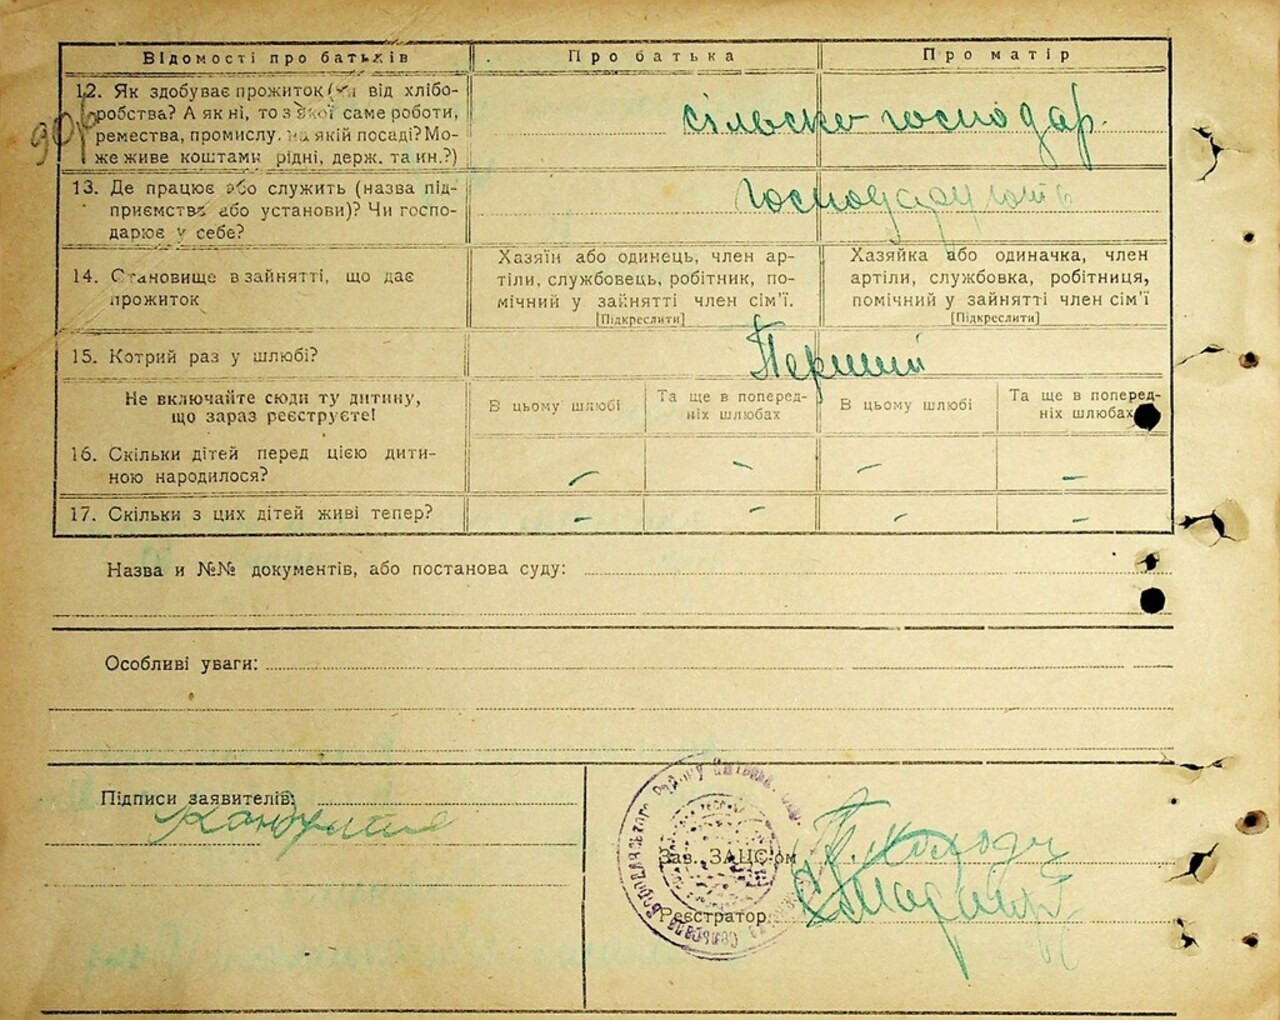 Відомості про батьків
Про батька
Про матір
12. Як здобуває прожиток (чи від хлібо-
робства? А як ні, то з якої саме роботи,
ремества, промислу, на якій посаді? Мо-
же живе коштами рідні, держ. та ин.?)
90
сільське господар.
13. Де працює або служить (назва під-
приємства або установи)? Чи госпо-
дарює у себе?
Господарують
14. Становище в зайнятті, що дає
прожиток
Хазяїн або одинець, член ар-
тіли, службовець, робітник, по-
мічний у зайнятті член сім'ї.
[Підкреслити]
Хазяйка або одиначка, член
артіли, службовка, робітниця,
помічний у зайнятті член сім'ї
[Підкреслити]
15. Котрий раз у шлюбі?
Перший
Не включайте сюди ту дитину,
що зараз реєструєте!
В цьому шлюбі
Та ще в поперед-
ніх шлюбах
В цьому шлюбі
Та ще в поперед-
ніх шлюбах
16. Скільки дітей перед цією дити-
ною народилося?
– – – –
17. Скільки з цих дітей живі тепер?
– – – –
Назва и №№ документів, або постанова суду:
Особливі уваги:
Підписи заявителів:
Зав. ЗАЦС'ом
Реєстратор